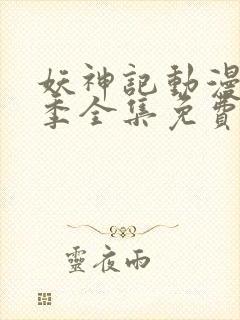 妖神記動漫
季全集免費
靈夜雨